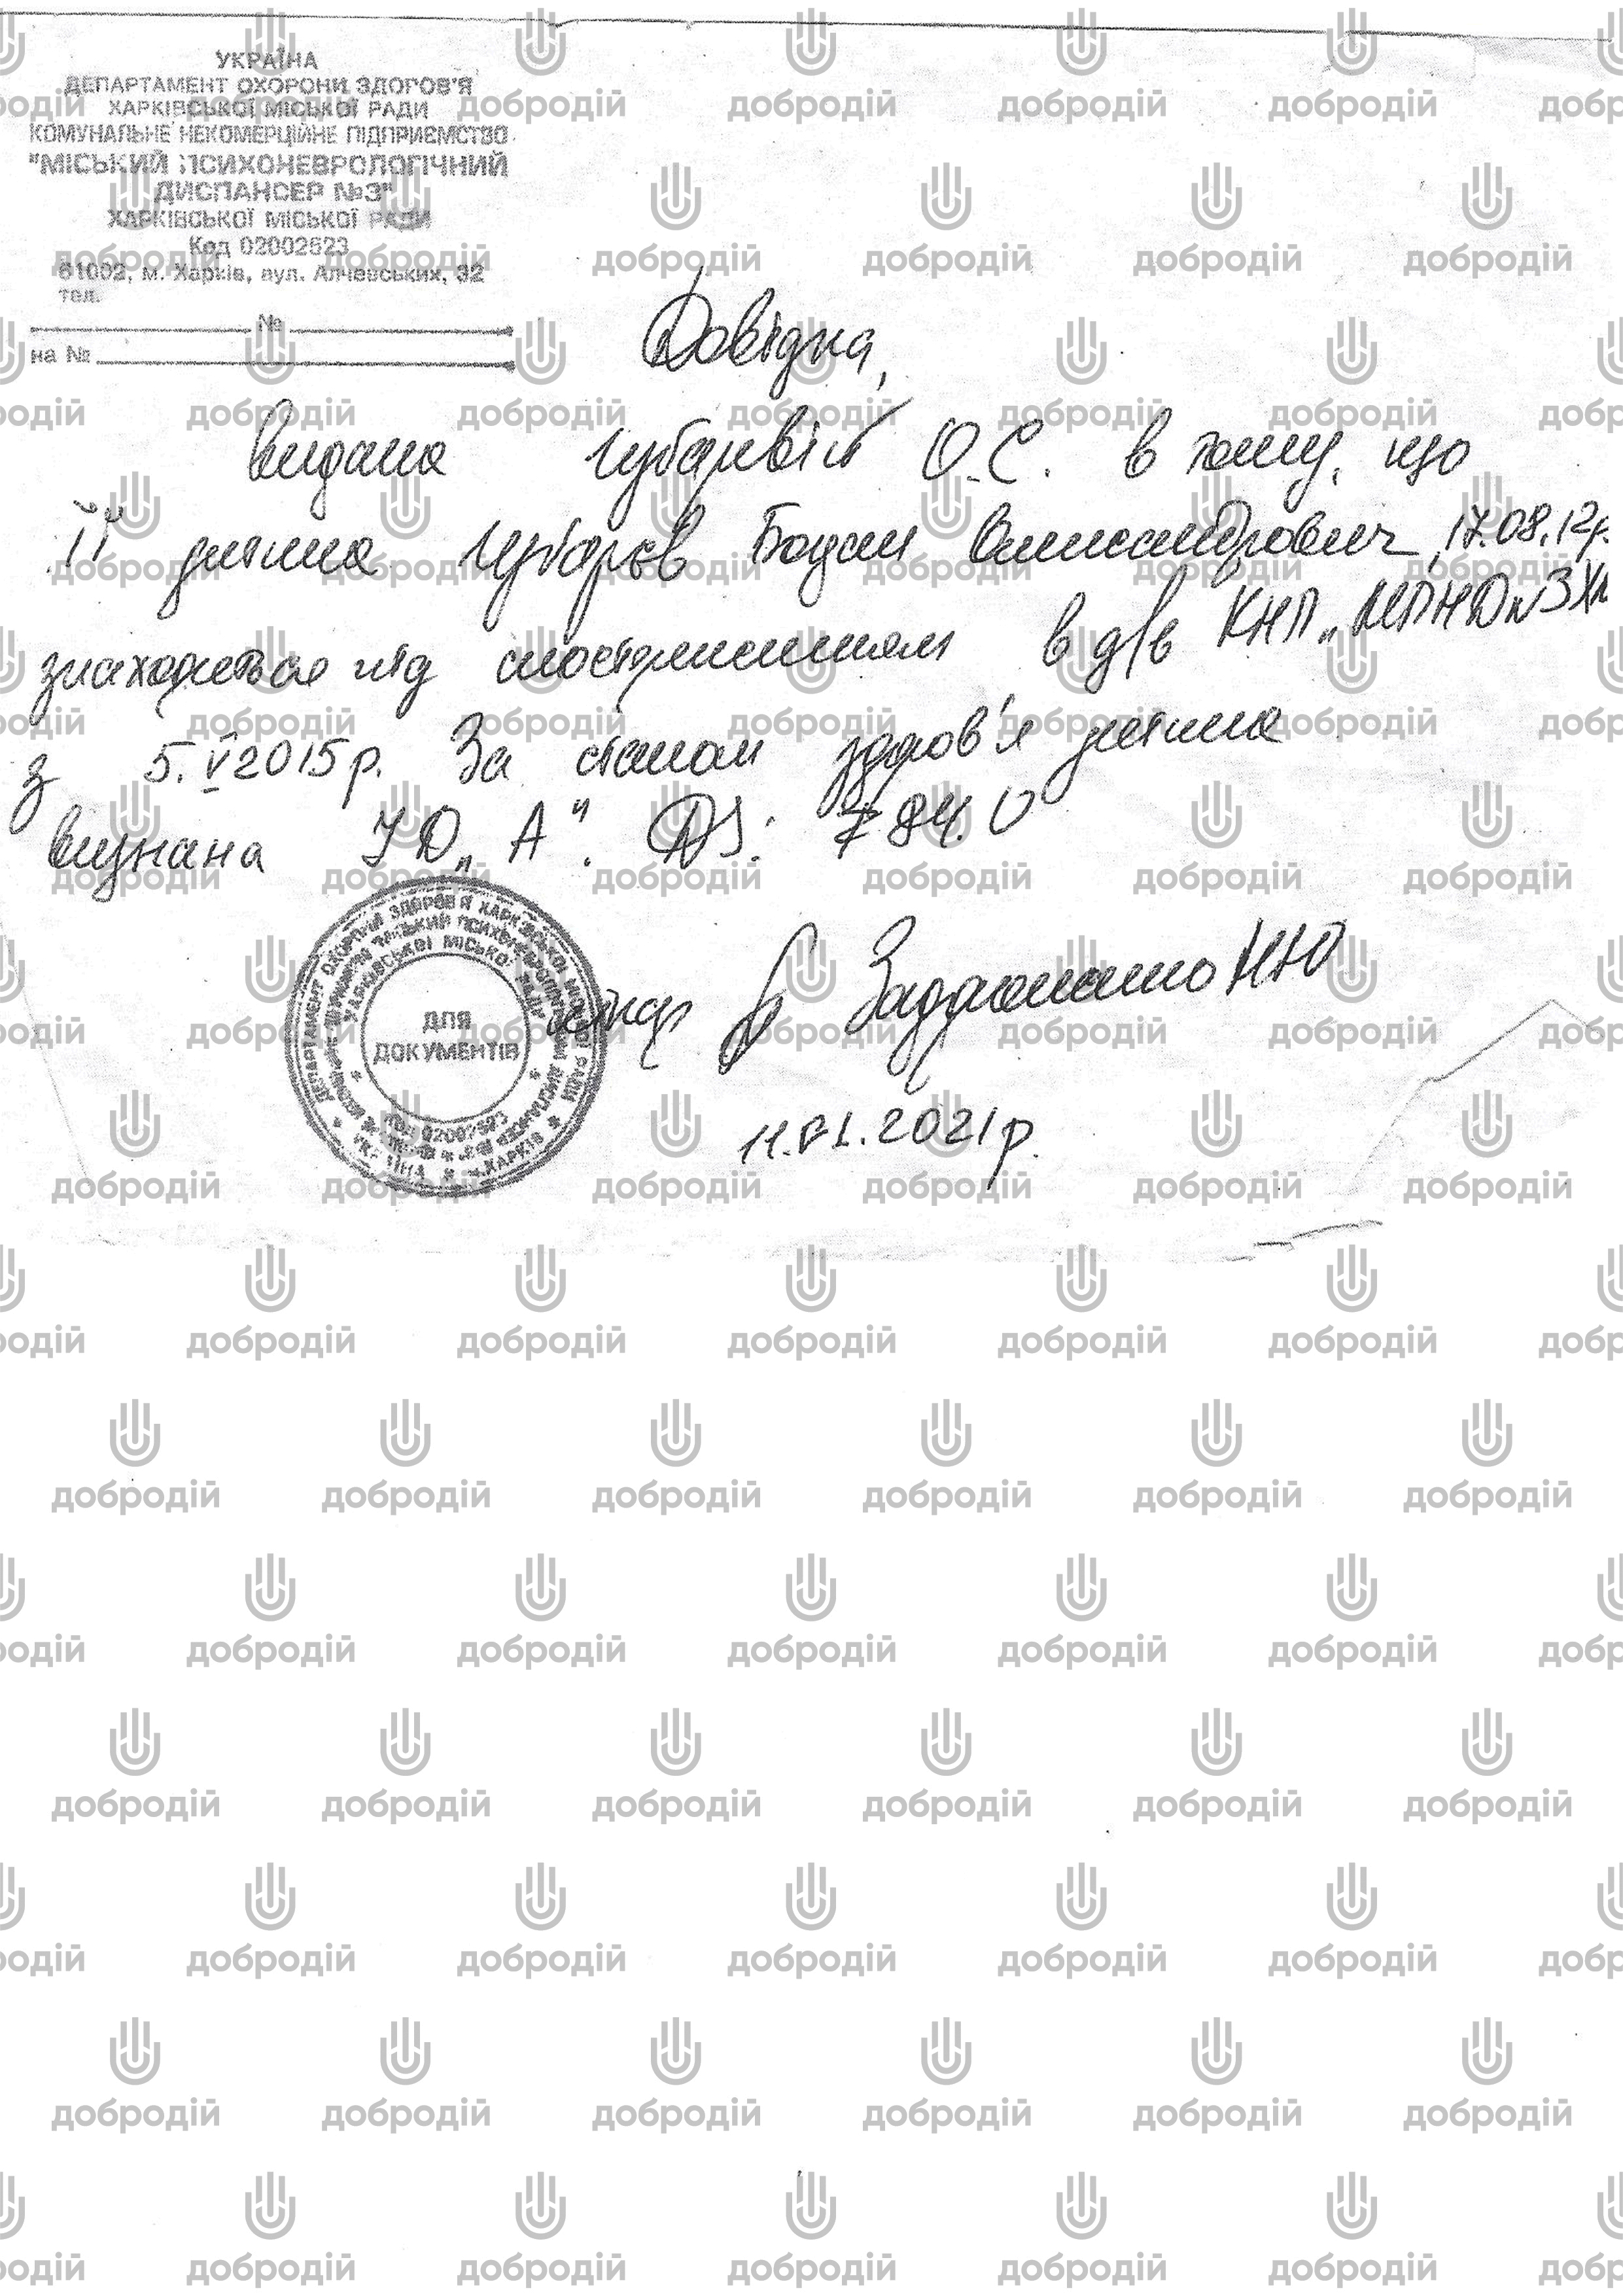 УКРАЇНА
ДЕПАРТАМЕНТ ОХОРОНИ ЗДОРОВ'Я
ХАРКІВСЬКОЇ МІСЬКОЇ РАДИ
КОМУНАЛЬНЕ НЕКОМЕРЦІЙНЕ ПІДПРИЄМСТВО
"МІСЬКИЙ ПСИХОНЕВРОЛОГІЧНИЙ
ДИСПАНСЕР №3"
ХАРКІВСЬКОЇ МІСЬКОЇ РАДИ
Код 02002623
61002, м. Харків, вул. Алчевських, 32
тел.
№
на №
Довідка,
видана Губарєвій О.С. в тому, що
її дитина Губарєв Богдан Олександрович, 17.08.12р.
знаходиться під спостереженням в д/в КНП „МПНД №3 ХМ
з 5.V 2015р. За станом здоров'я дитина
визнана ІД „А". DS: F 84.0
ДЕПАРТАМЕНТ ОХОРОНИ ЗДОРОВ'Я ХАРКІВСЬКОЇ МІСЬКОЇ РАДИ
ДЛЯ
ДОКУМЕНТІВ
УКРАЇНА * м.ХАРКІВ
лікар
11.01.2021р.
добродій